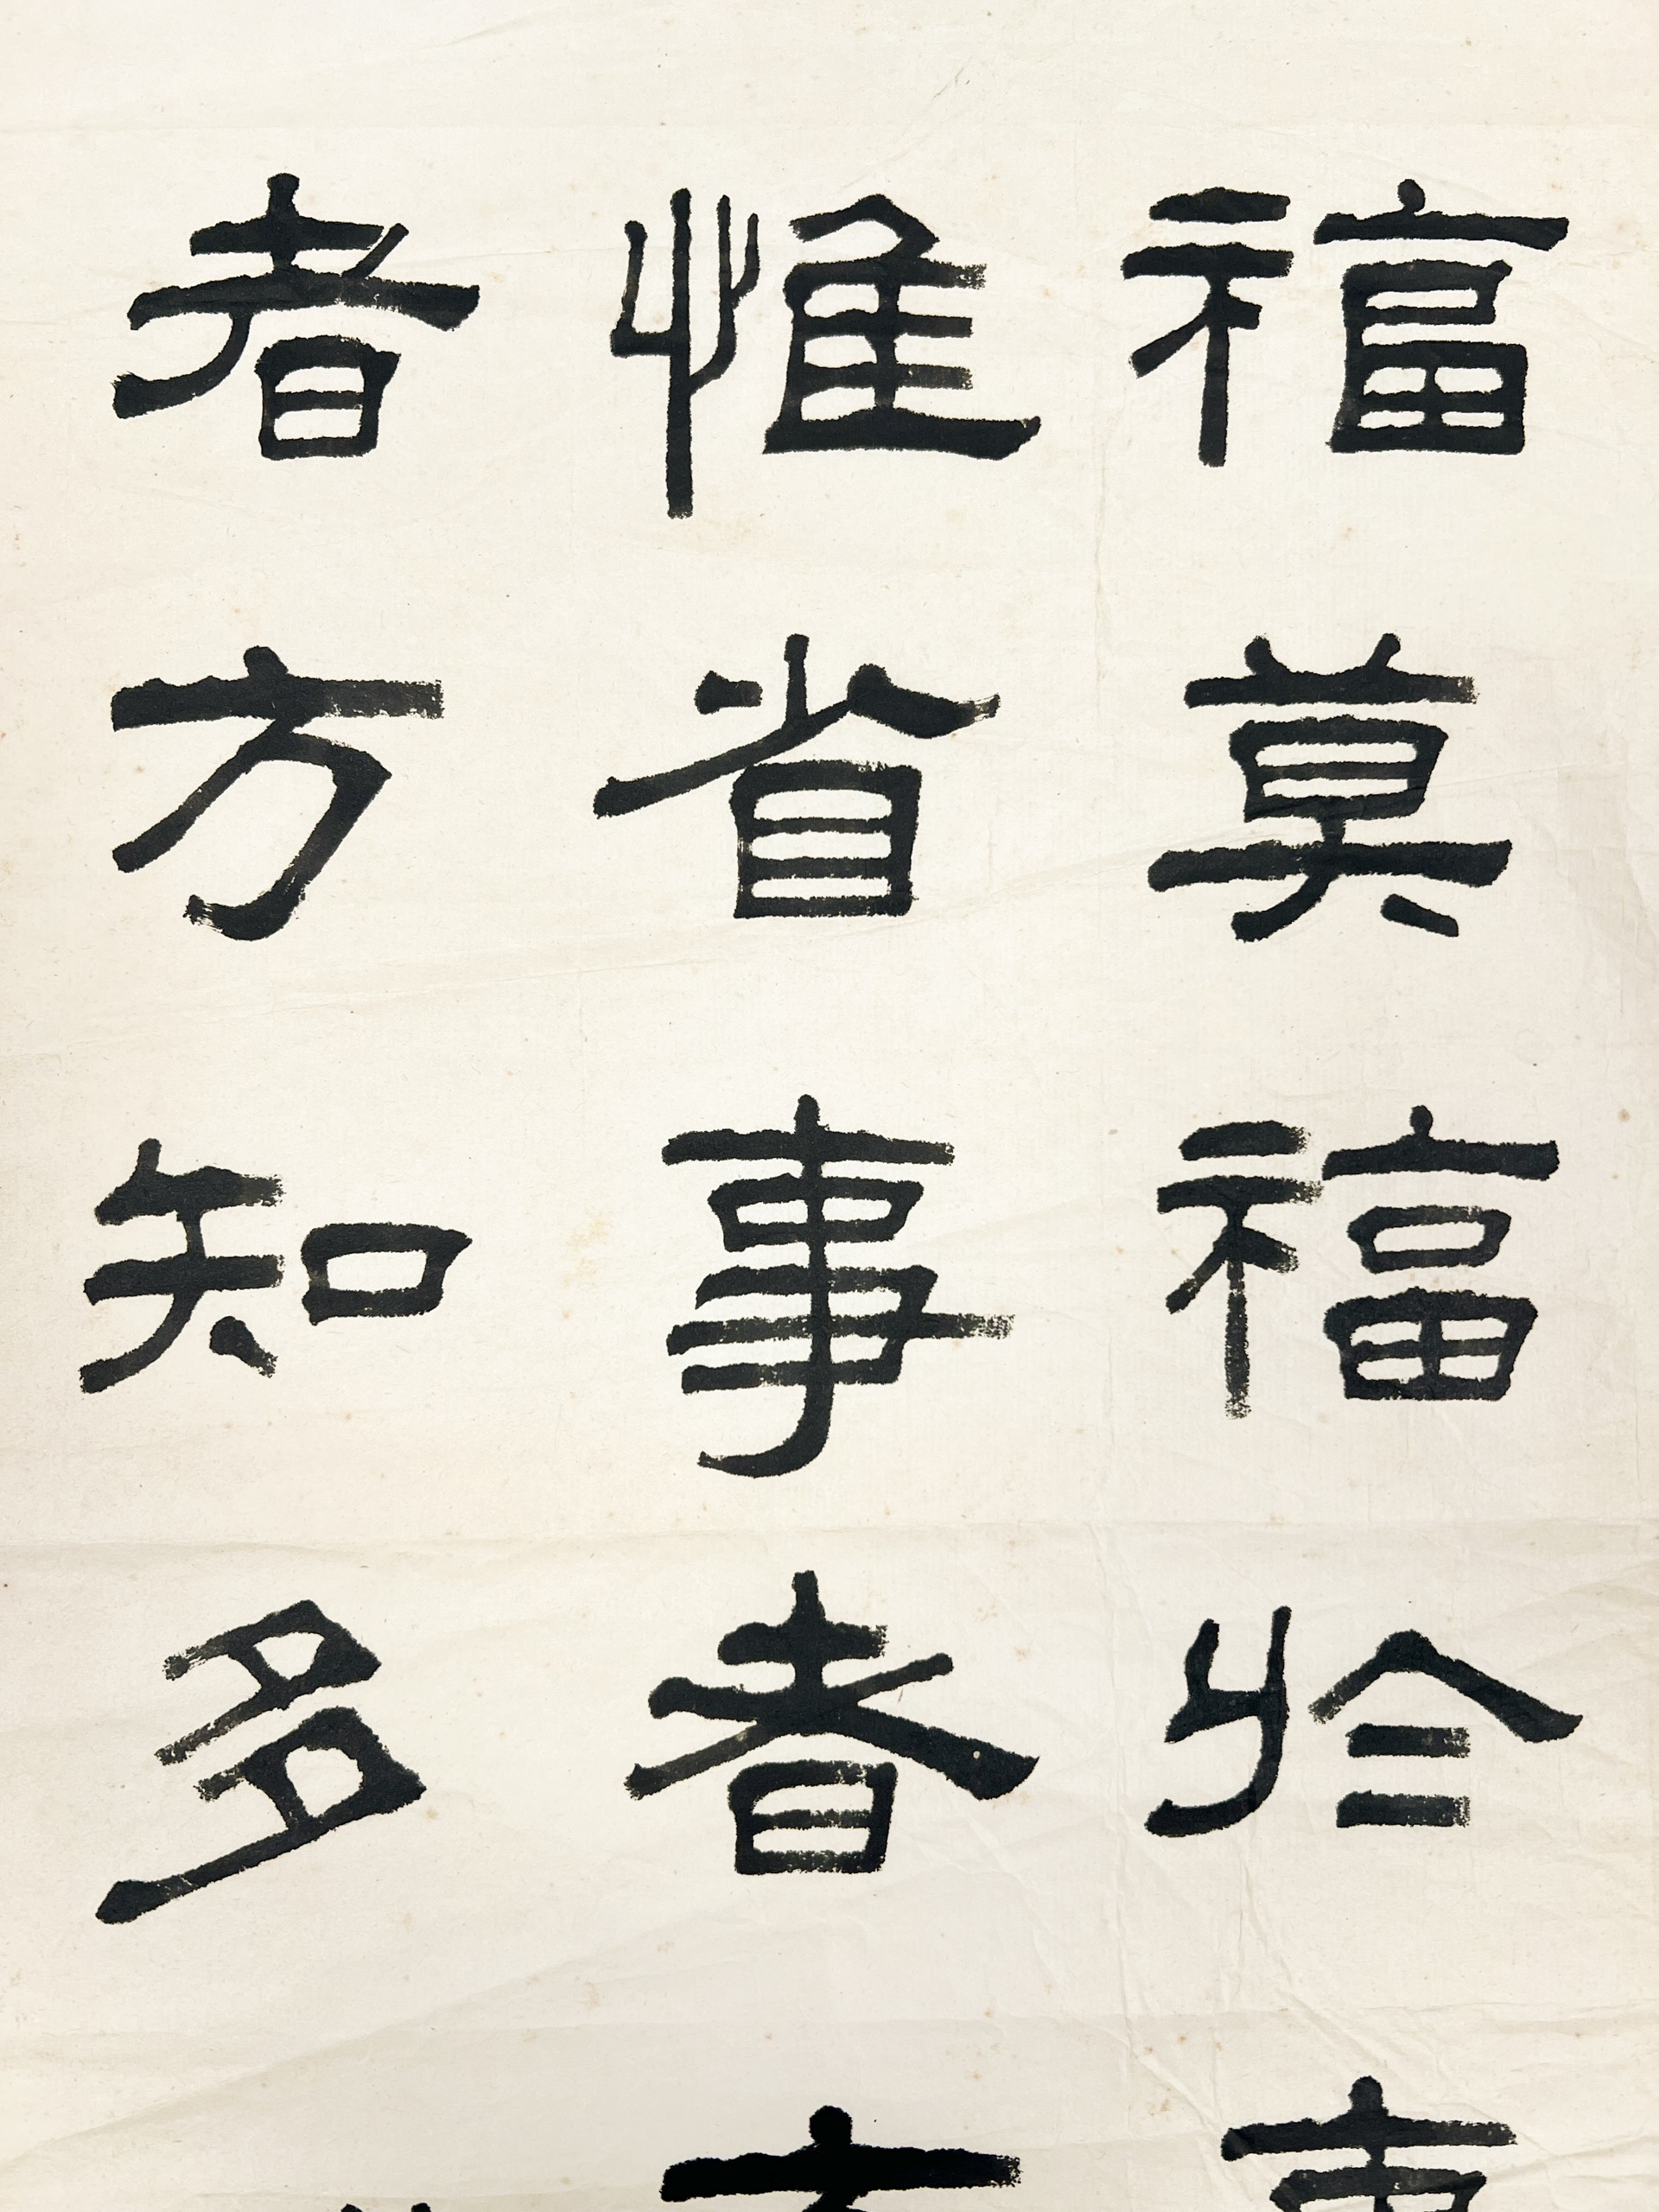 福莫福於
惟省事者
者方知多